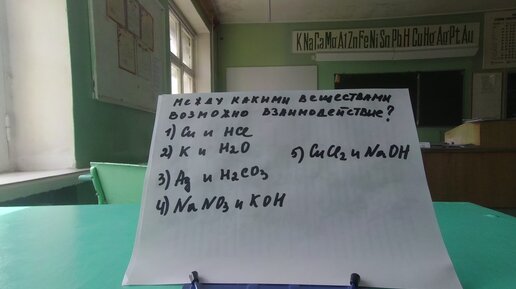 K Na Ca Mg Al Zn Fe Ni Sn Pb H Cu Hg Ag Pt Au
МЕЖДУ КАКИМИ ВЕЩЕСТВАМИ
ВОЗМОЖНО ВЗАИМОДЕЙСТВИЕ?
1) Cu и HCl
2) K и H2O
3) Ag и H2CO3
4) NaNO3 и KOH
5) CuCl2 и NaOH